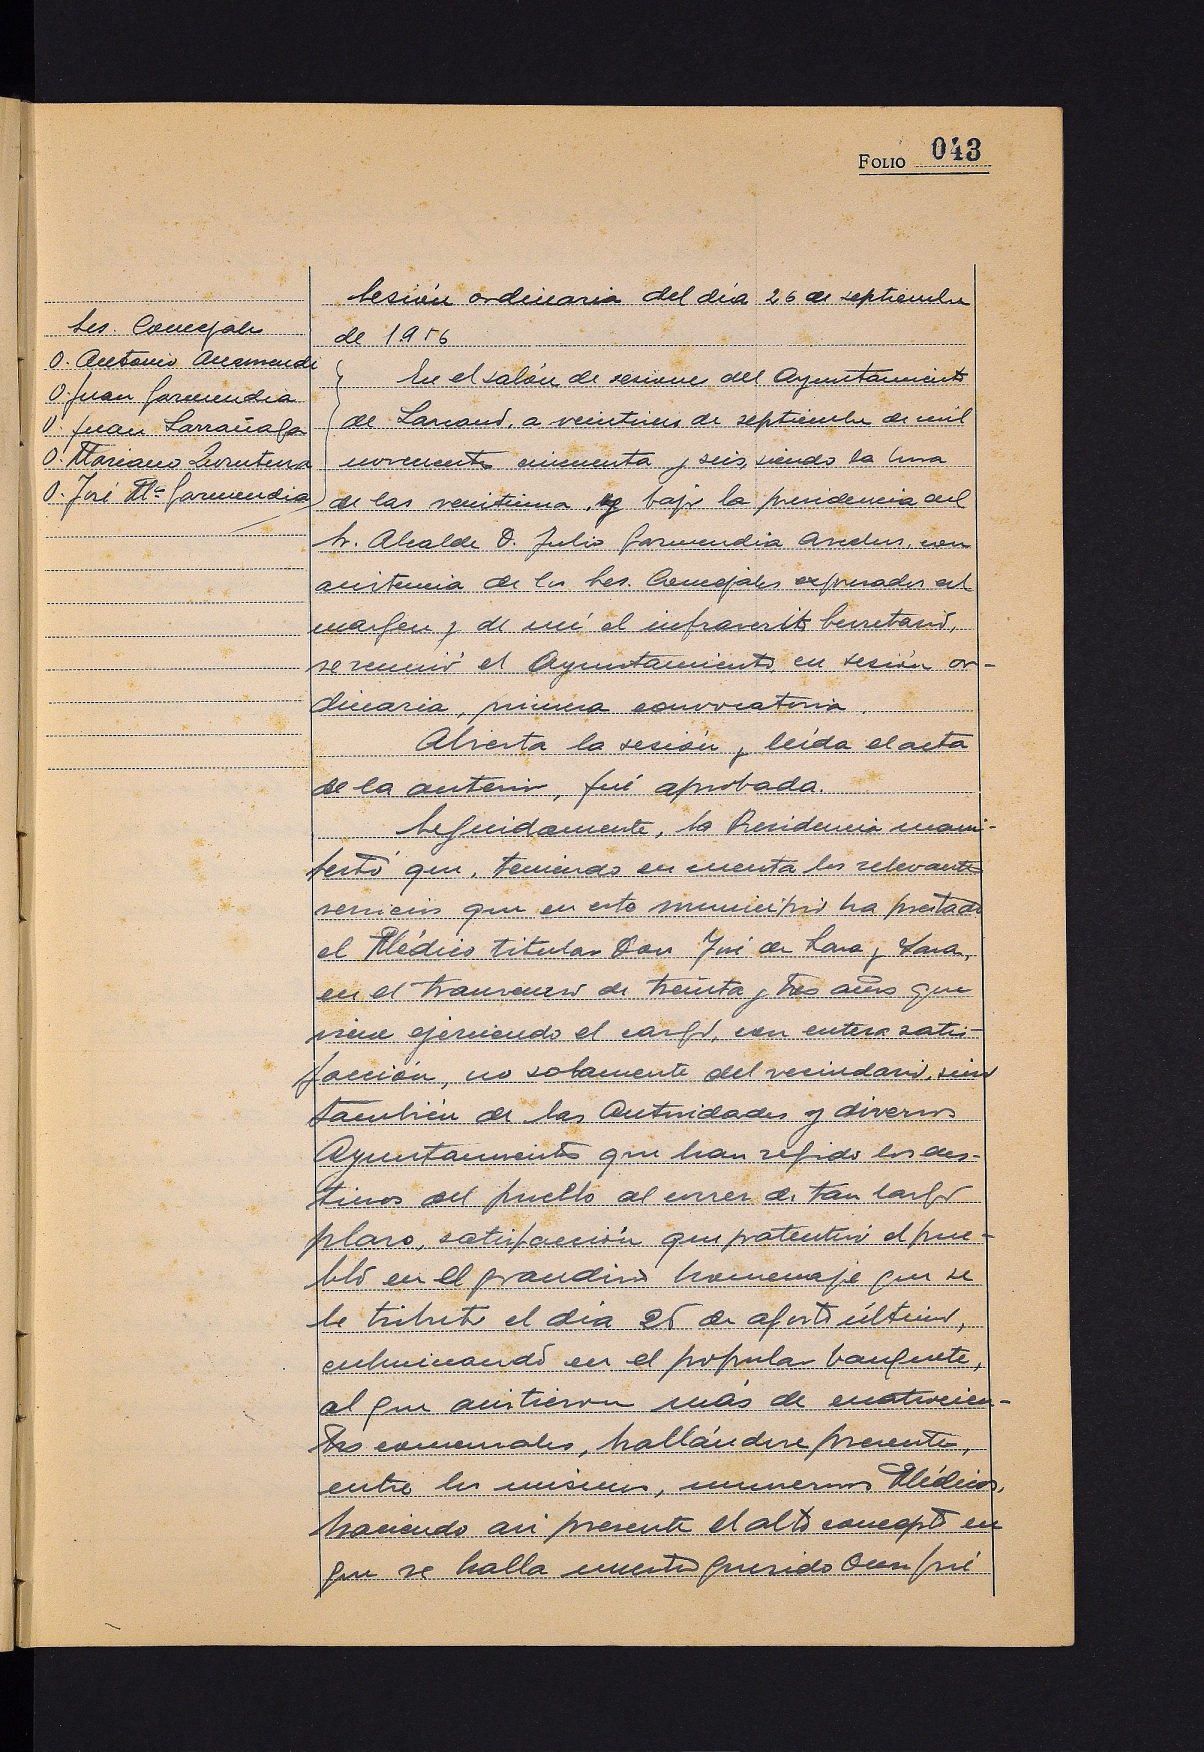 FOLIO 043
Sesión ordinaria del día 26 de septiembre
de 1956
Sres. Concejales
D. Antonio Auzmendi
D. Juan Garmendia
D. Juan Larrañaga
D. Mariano Zurutuza
D. José Mª Garmendia
En el salón de sesiones del Ayuntamiento
de Lazcano, a veintiseis de septiembre de mil
novecientos cincuenta y seis, siendo la hora
de las veintiuna, y bajo la presidencia del
Sr. Alcalde D. Julio Garmendia, con
asistencia de los Sres. Concejales expresados al
margen y de mí el infrascrito Secretario,
se reunió el Ayuntamiento en sesión or-
dinaria, primera convocatoria.
Abierta la sesión y leída el acta
de la anterior, fué aprobada.
Seguidamente, la Presidencia mani-
festó que, teniendo en cuenta los relevantes
servicios que en este municipio ha prestado
el Médico titular Don José de Lara y Lara,
en el transcurso de treinta y tres años que
viene ejerciendo el cargo, con entera satis-
facción, no solamente del vecindario, sino
también de las Autoridades y diversos
Ayuntamientos que han regido los des-
tinos del pueblo al correr de tan largo
plazo, satisfacción que patentizó el pue-
blo en el grandioso homenaje que se
le tributó el día 25 de agosto último,
culminando en el popular banquete,
al que asistieron más de cuatrocien-
tos comensales, hallándose presentes,
entre los mismos, numerosos Médicos,
haciendo asi presente el alto concepto en
que se halla nuestro querido Don José